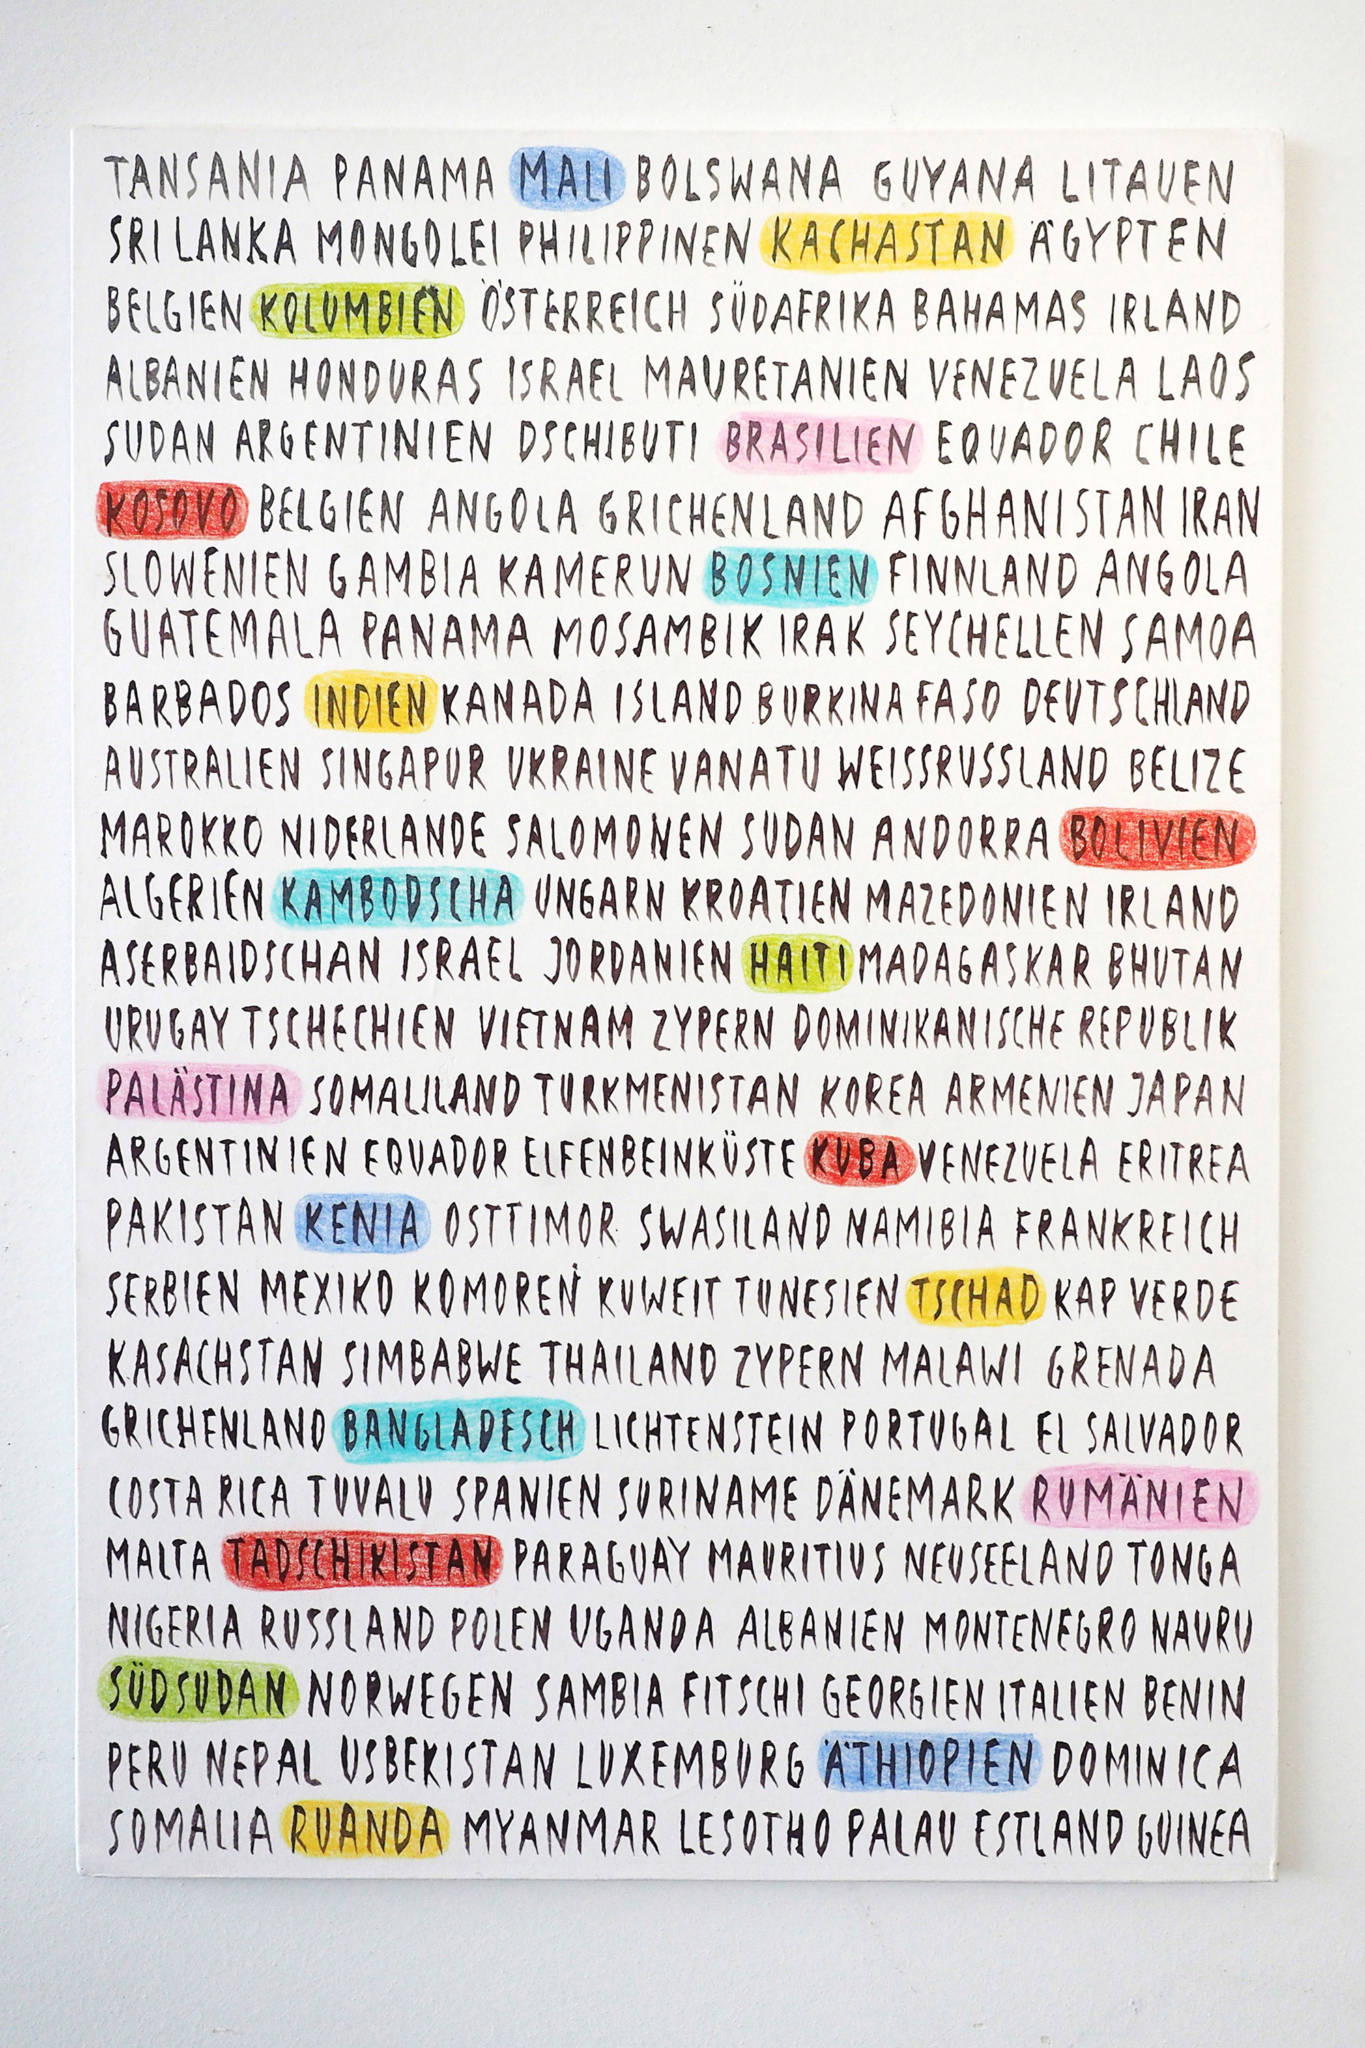 TANSANIA PANAMA MALI BOLSWANA GUYANA LITAUEN
SRI LANKA MONGOLEI PHILIPPINEN KACHASTAN ÄGYPTEN
BELGIEN KOLUMBIEN ÖSTERREICH SÜDAFRIKA BAHAMAS IRLAND
ALBANIEN HONDURAS ISRAEL MAURETANIEN VENEZUELA LAOS
SUDAN ARGENTINIEN DSCHIBUTI BRASILIEN EQUADOR CHILE
KOSOVO BELGIEN ANGOLA GRICHENLAND AFGHANISTAN IRAN
SLOWENIEN GAMBIA KAMERUN BOSNIEN FINNLAND ANGOLA
GUATEMALA PANAMA MOSAMBIK IRAK SEYCHELLEN SAMOA
BARBADOS INDIEN KANADA ISLAND BURKINA FASO DEUTSCHLAND
AUSTRALIEN SINGAPUR UKRAINE VANATU WEISSRUSSLAND BELIZE
MAROKKO NIDERLANDE SALOMONEN SUDAN ANDORRA BOLIVIEN
ALGERIEN KAMBODSCHA UNGARN KROATIEN MAZEDONIEN IRLAND
ASERBAIDSCHAN ISRAEL JORDANIEN HAITI MADAGASKAR BHUTAN
URUGAY TSCHECHIEN VIETNAM ZYPERN DOMINIKANISCHE REPUBLIK
PALÄSTINA SOMALILAND TURKMENISTAN KOREA ARMENIEN JAPAN
ARGENTINIEN EQUADOR ELFENBEINKÜSTE KUBA VENEZUELA ERITREA
PAKISTAN KENIA OSTTIMOR SWASILAND NAMIBIA FRANKREICH
SERBIEN MEXIKO KOMOREN KUWEIT TUNESIEN TSCHAD KAP VERDE
KASACHSTAN SIMBABWE THAILAND ZYPERN MALAWI GRENADA
GRICHENLAND BANGLADESCH LICHTENSTEIN PORTUGAL EL SALVADOR
COSTA RICA TUVALU SPANIEN SURINAME DÄNEMARK RUMÄNIEN
MALTA TADSCHIKISTAN PARAGUAY MAURITIUS NEUSEELAND TONGA
NIGERIA RUSSLAND POLEN UGANDA ALBANIEN MONTENEGRO NAURU
SÜDSUDAN NORWEGEN SAMBIA FITSCHI GEORGIEN ITALIEN BENIN
PERU NEPAL USBEKISTAN LUXEMBURG ÄTHIOPIEN DOMINICA
SOMALIA RUANDA MYANMAR LESOTHO PALAU ESTLAND GUINEA